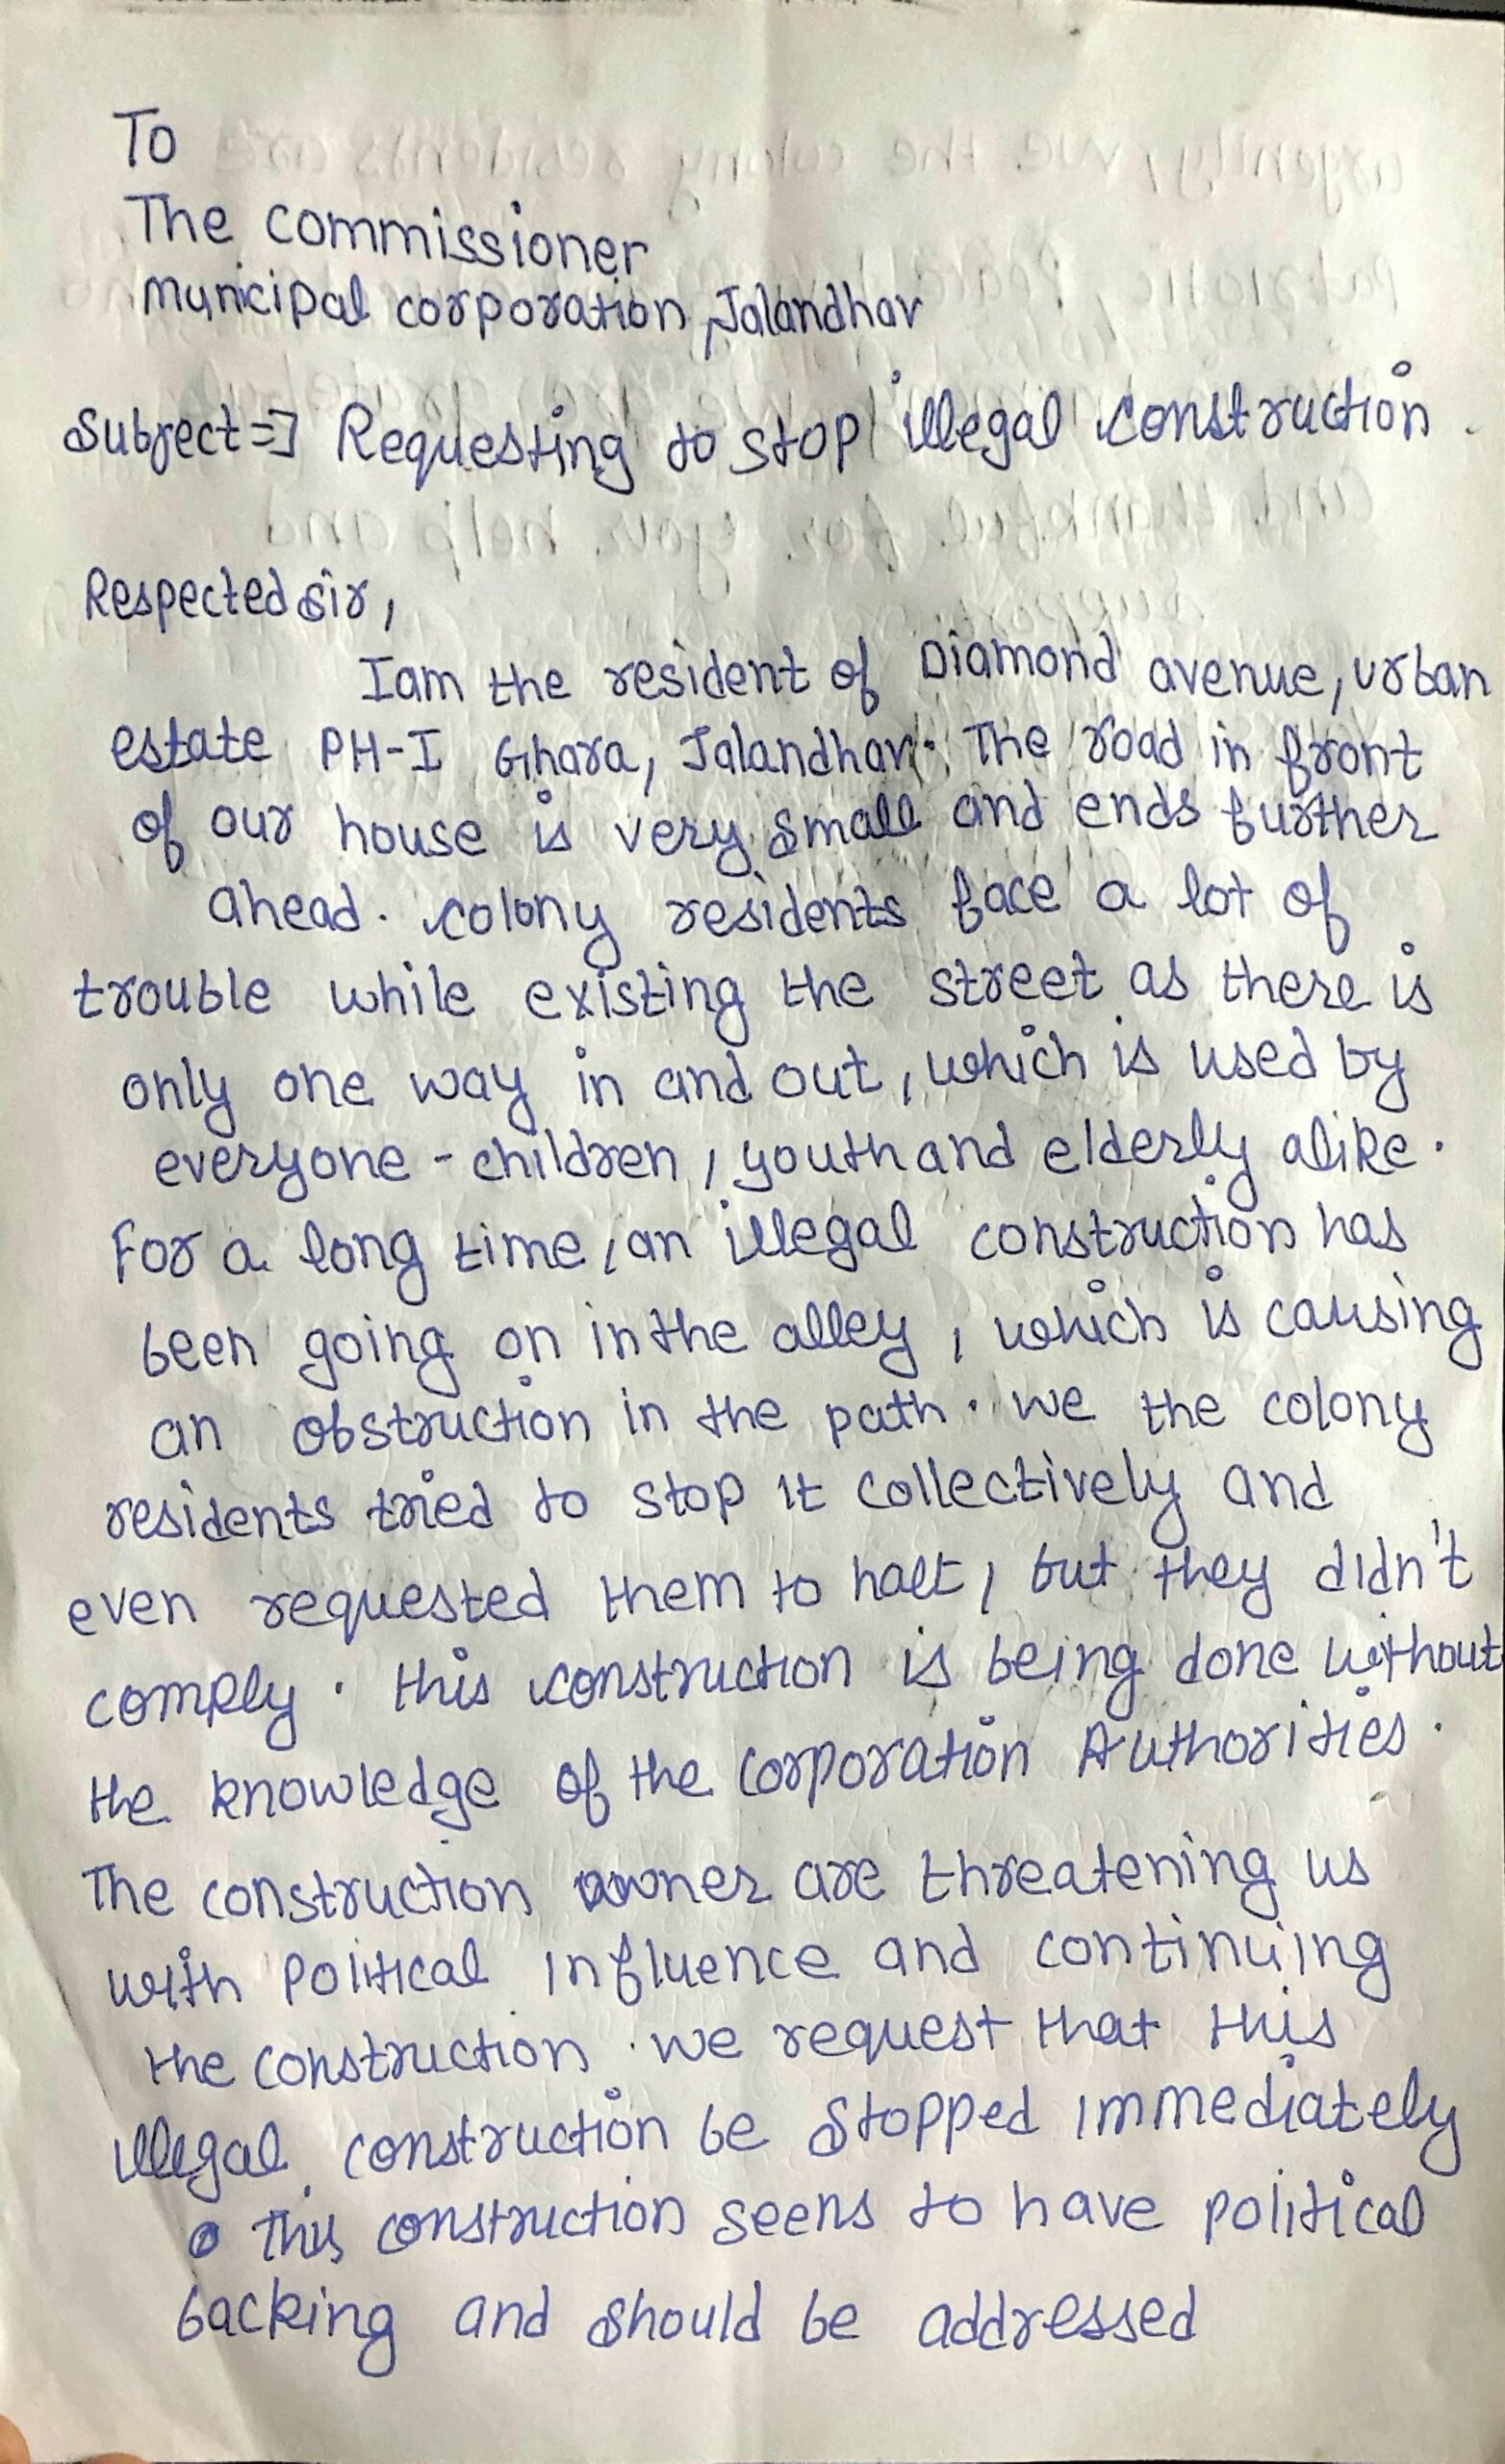 To
The commissioner
Municipal corporation, Jalandhar
Subject => Requesting to stop illegal construction.
Respected sir,
I am the resident of Diamond avenue, urban
estate PH-I Ghara, Jalandhar. The road in front
of our house is very small and ends further
ahead. colony residents face a lot of
trouble while existing the street as there is
only one way in and out, which is used by
everyone - children, youth and elderly alike.
For a long time, an illegal construction has
been going on in the alley, which is causing
an obstruction in the path. we the colony
residents tried to stop it collectively and
even requested them to halt, but they didn't
comply. this construction is being done without
the knowledge of the corporation Authorities.
The construction owner are threatening us
with political influence and continuing
the construction. we request that this
illegal construction be stopped immediately
. This construction seems to have political
backing and should be addressed